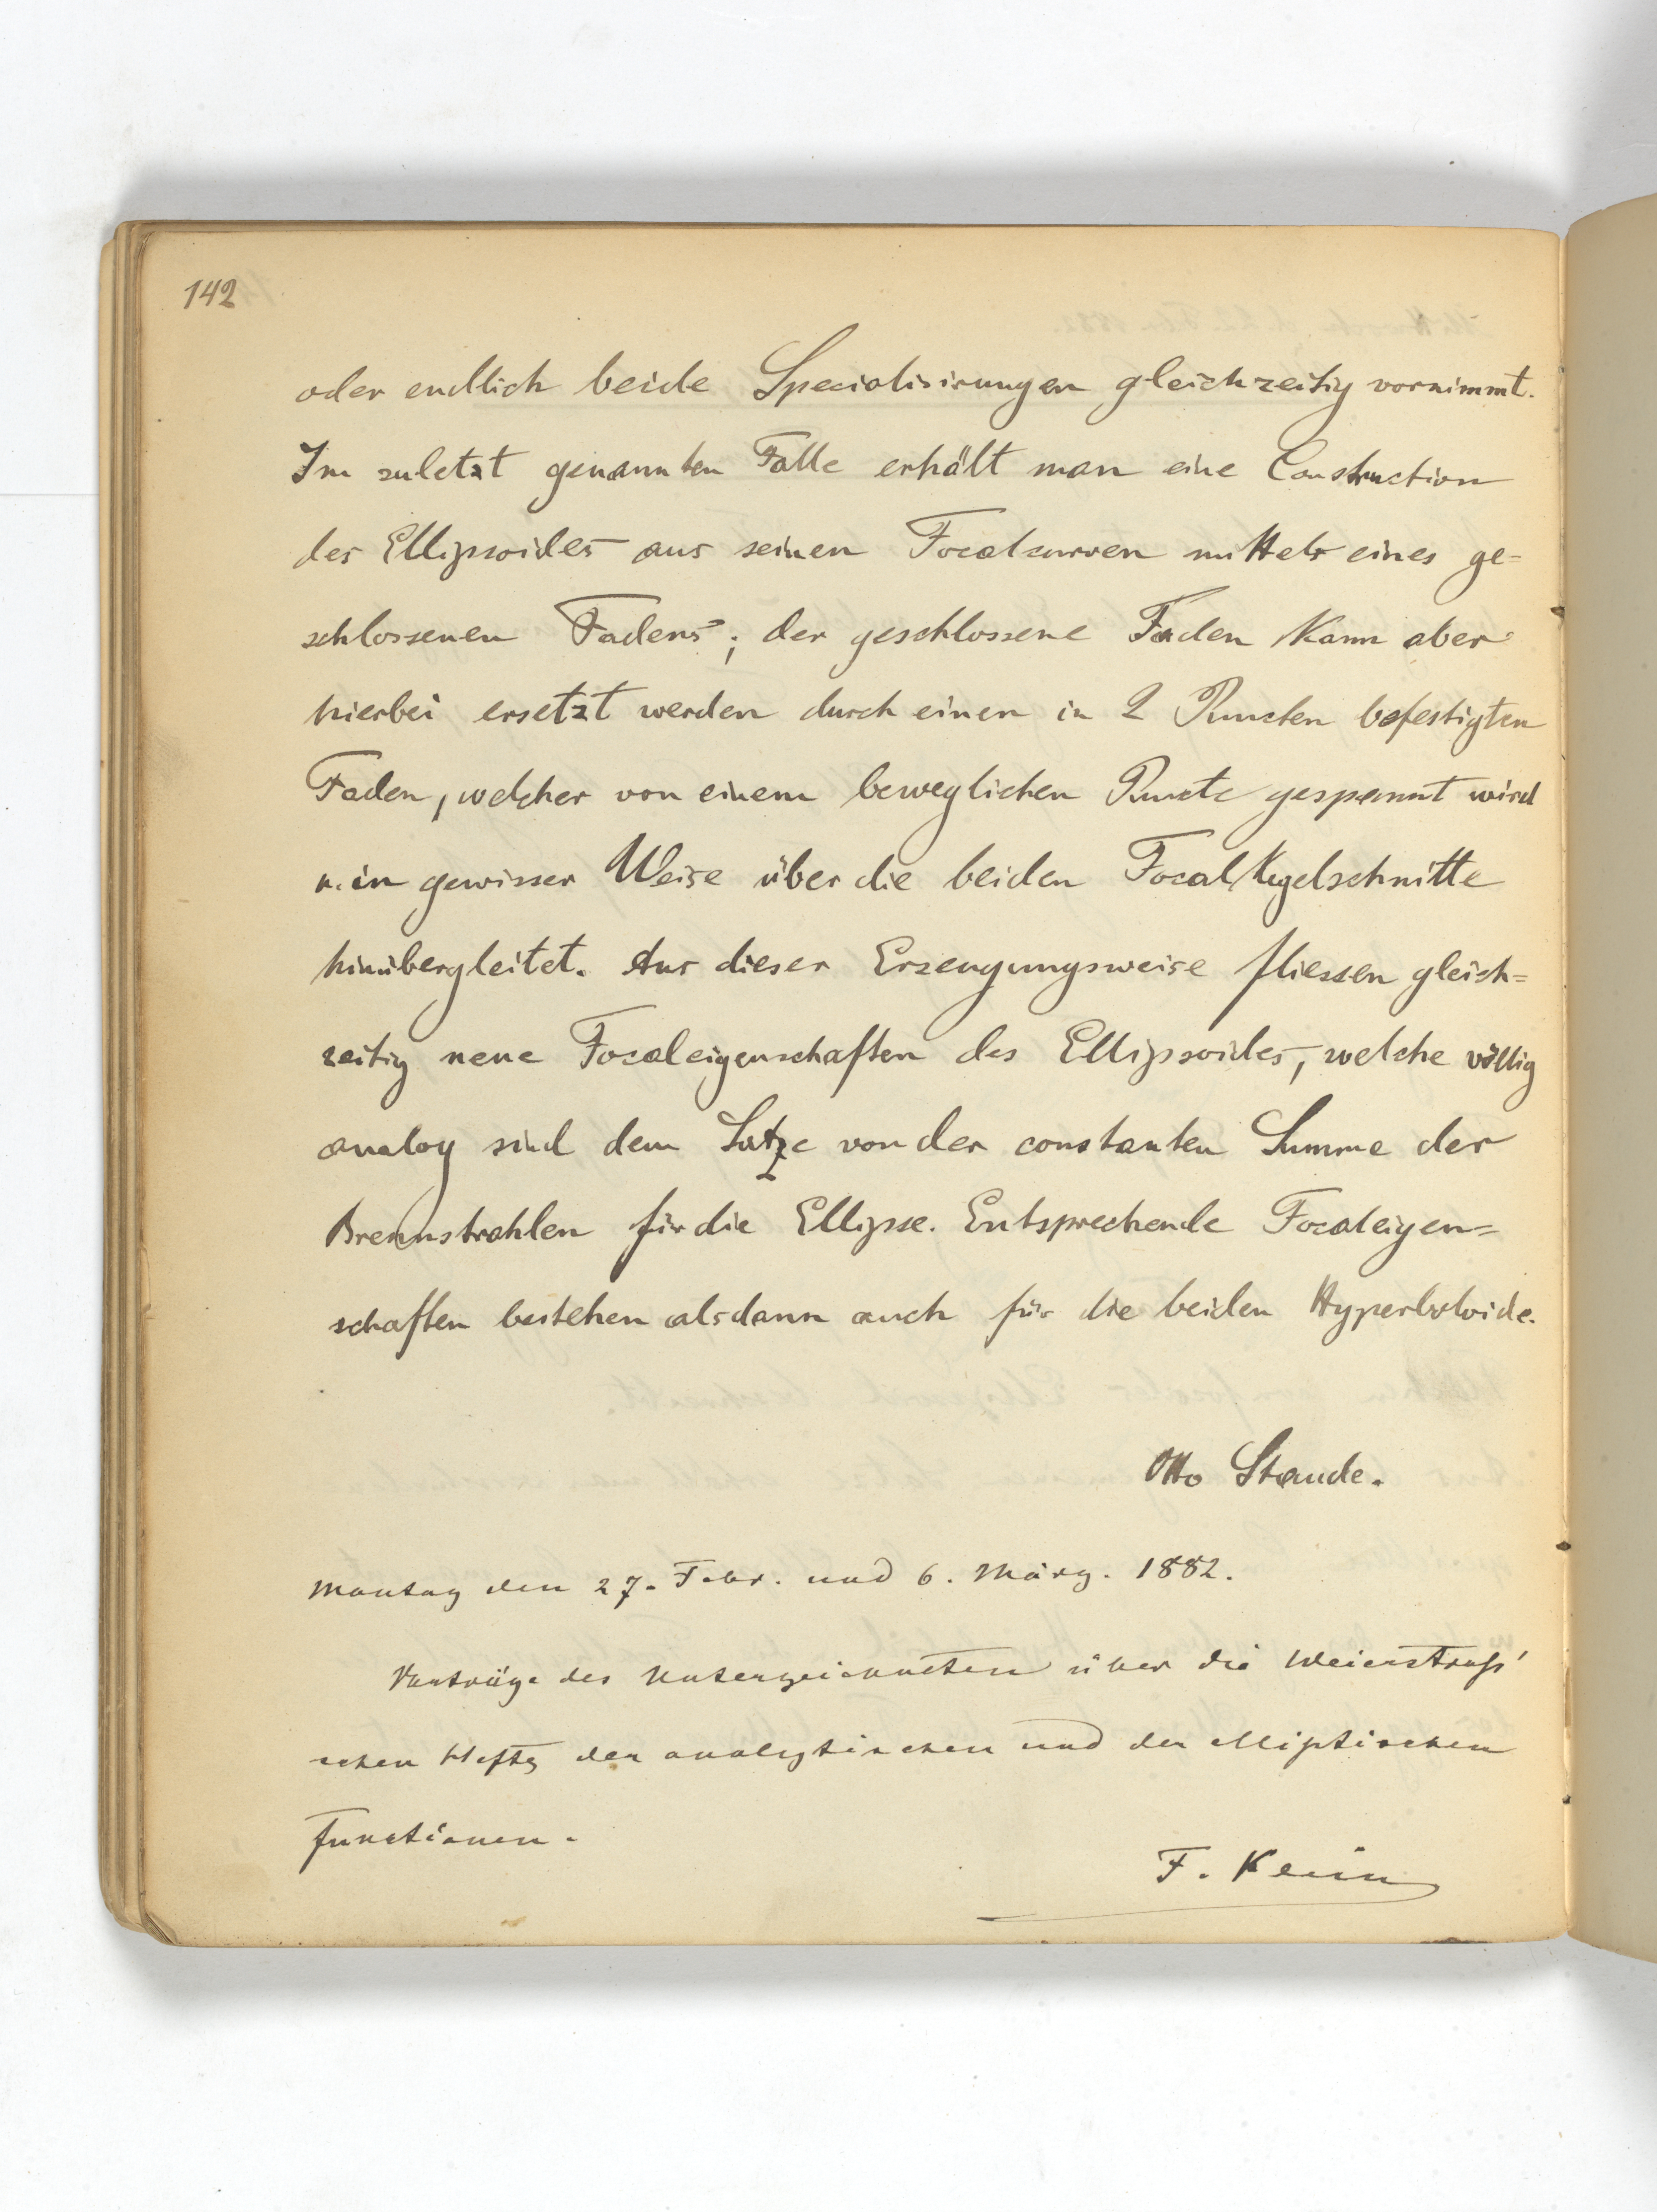 142
oder endlich beide Specialisirungen gleichzeitig vornimmt.
Im zuletzt genannten Falle erhält man eine Construction
des Ellipsoides aus seinen Focalcurven mittels eines ge=
schlossenen Fadens; der geschlossene Faden kann aber
hierbei ersetzt werden durch einen in 2 Puncten befestigten
Faden, welcher von einem beweglichen Puncte gespannt wird
u. in gewisser Weise über die beiden Focalkegelschnitte
hinübergleitet. Aus dieser Erzeugungsweise fliessen gleich=
zeitig neue Focaleigenschaften des Ellipsoides, welche völlig
analog sind dem Satze von der constanten Summe der
Brennstrahlen für die Ellipse. Entsprechende Focaleigen=
schaften bestehen alsdann auch für die beiden Hyperboloide.
Otto Staude.
Montag den 27. Febr. und 6. März. 1882.
Vorträge des Unterzeichneten über die Weierstraß'
schen Hefte der analytischen und der elliptischen
Functionen.
F. Klein